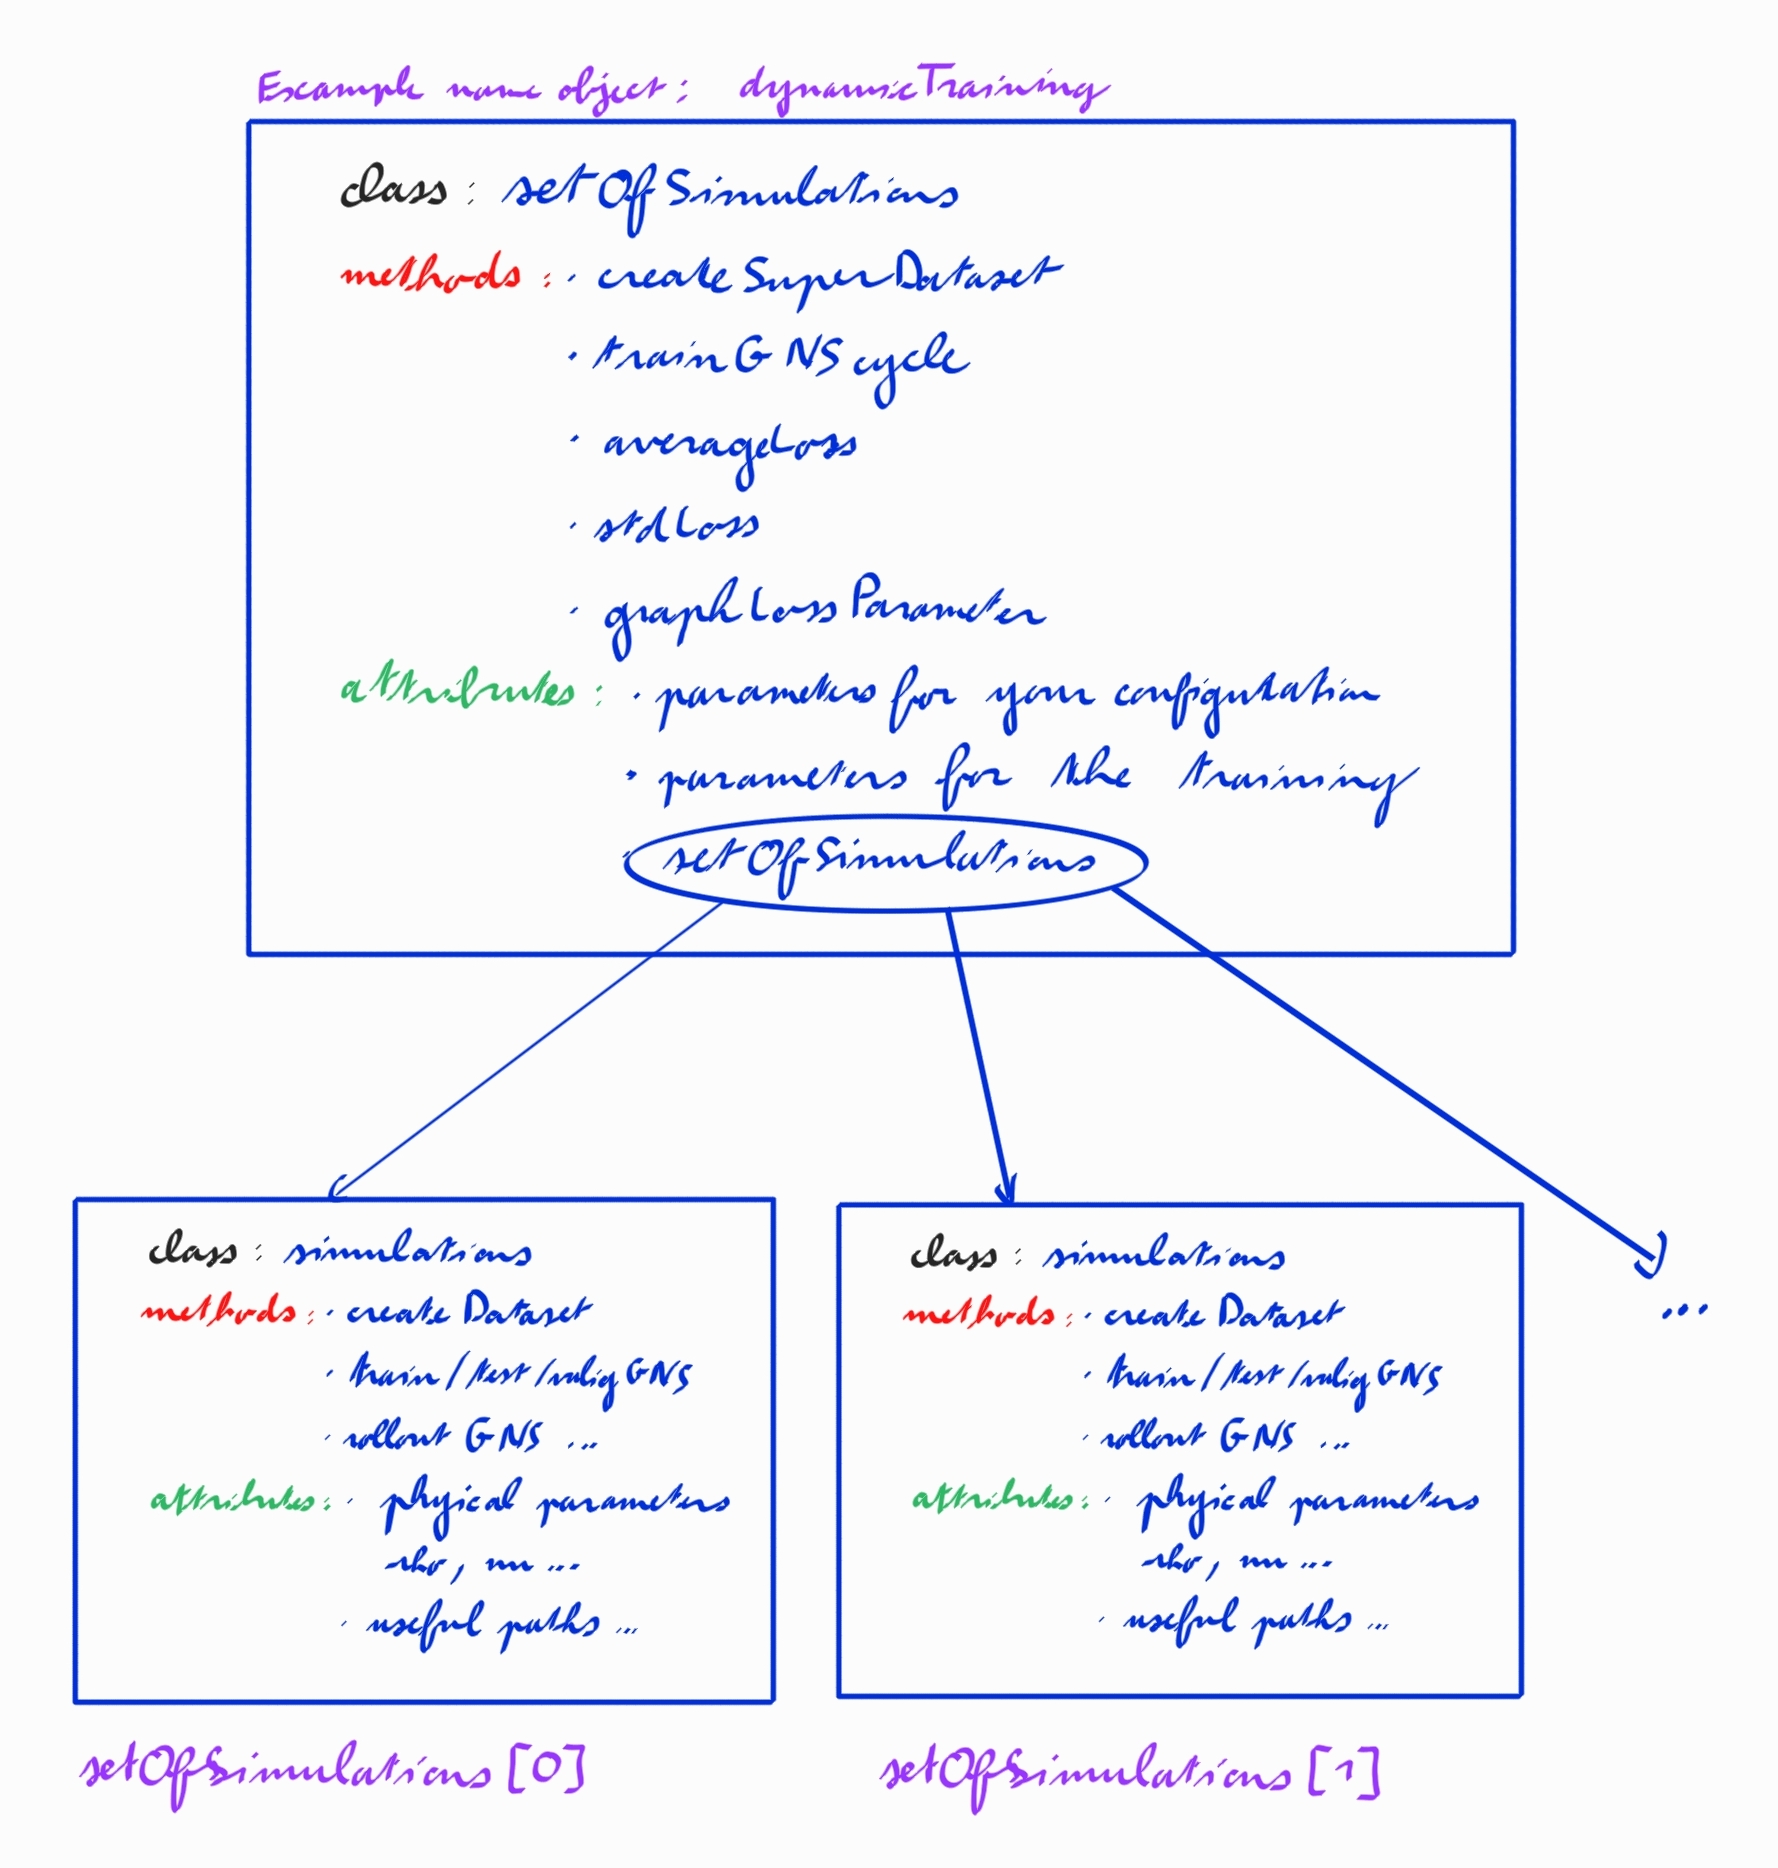 Example name object : dynamicTraining
class : setOfSimulations
methods : · createSuperDataset
· trainGNScycle
· averageLoss
· stdLoss
· graphLossParameter
attributes : · parameters for your configutation
· parameters for the training
· setOfSimulations
class : simulations
methods : · createDataset
· train/test/validGNS
· rolloutGNS ...
attributes : · phyical parameters
rho, nu ...
· useful paths ...
setOfSimulations [0]
class : simulations
methods : · createDataset
· train/test/validGNS
· rolloutGNS ...
attributes : · phyical parameters
rho, nu ...
· useful paths ...
setOfSimulations [1]
...